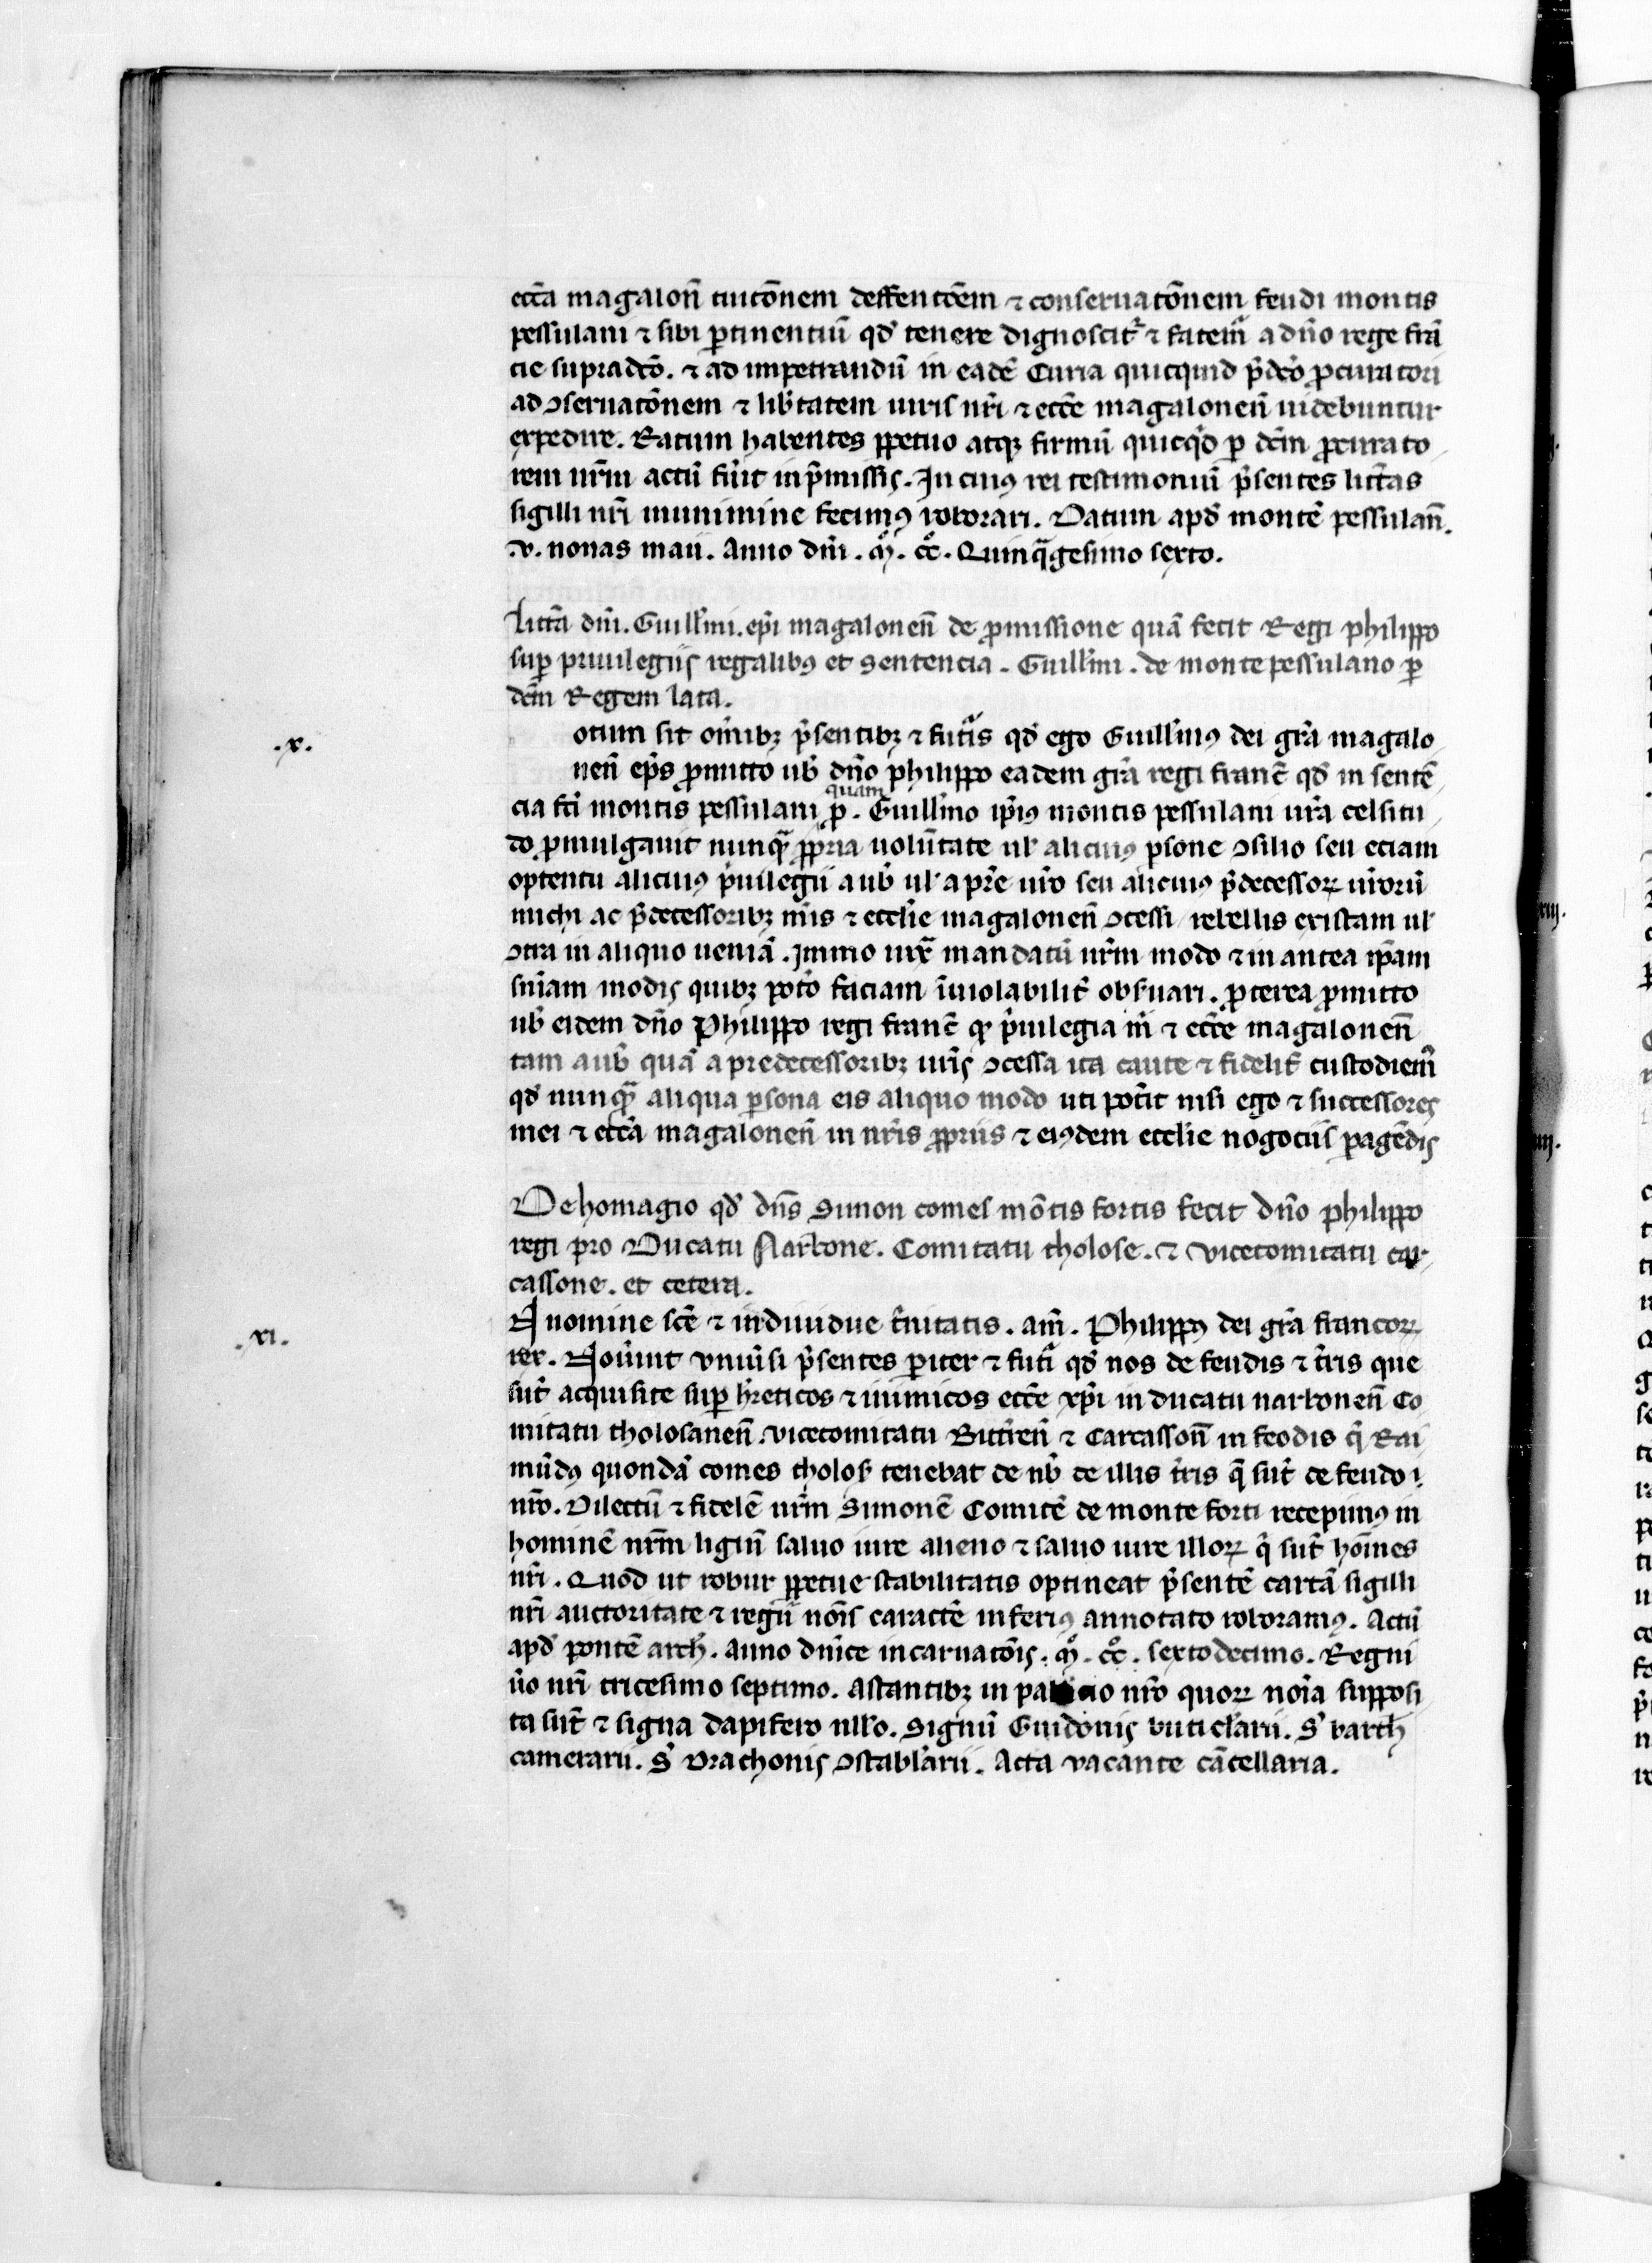 ecc̄a magalon̄ tuicōnem deffencōem ⁊ conseruacōnem feudi montis
pessulani ⁊ sibi ꝑtinentiū qd̛ tenere dignoscit᷑ ⁊ fatem᷑ a dn̄o rege frā
cie supradc̄o. ⁊ ad impetrandū in eadē Curia quicquid p̄dc̄o ꝓcuratori
ad ꝯseruacōnem ⁊ lib̄tatem iuris nr̄i ⁊ ecc̄e magalonen̄ uidebuntur
expedire. Ratum habentes ꝑpetuo atqꝫ firmū quicqd̛ ꝑ dc̄m ꝓcurato
rem nr̄m actū fūit in p̄missis. In cuiꝰ rei testimoniū p̄sentes litt̄as
sigilli nr̄i munimine fecimꝰ roborari. Datum apd̛ montē pessulan̄.
.v. nonas maii. Anno dn̄i. m̊. cc̊. Quinq̄gesimo sexto.
Litt̄a dn̄i. Guill̄mi. ep̄i magalonen̄ de ꝓmissione quā fecit Regi philippo
suꝑ priuilegiis regalibꝰ et sentencia. Guill̄mi. de monte pessulano ꝑ
dc̄m Regem lata.
.x.
otum sit om̄ibꝫ p̄sentibꝫ ⁊ futr̄is qd̛ ego Guill̄mꝰ dei gr̄a magalo
nen̄ ep̄s ꝓmitto ub̄ dn̄o philippo eadem gr̄a regi franc̄ qd̛ in sentē
quam
cia fc̄i montis pessulani ꝓ. Guill̄mo ip̄iꝰ montis pessulani ur̄a celsitu
do ꝓmulgauit nunq̄ ꝓpria uolūtate ul̛ alicuiꝰ ꝑsone ꝯsilio seu eciam
optentu alicuiꝰ p̄uilegii a ub̄ ul̛ a pr̄e ur̄o seu alicuiꝰ p̄decessorꝝ ur̄orū
michi ac p̄decessoribꝫ mīs ⁊ eccl̄ie magalonen̄ ꝯcessi rebellis existam ul̛
ꝯtra in aliquo ueniā. Immo iuxᷓ mandatū ur̄m modo ⁊ in antea ip̄am
sn̄iam modis quibꝫ pot̄o faciam īuiolabilit̄ obs̄uari. p̄terea ꝓmitto
ub̄ eidem dn̄o Philippo regi franc̄ qꝫ p̄uilegia m̄ ⁊ ecc̄e magalonen̄
tam a ub̄ quā a predecessoribꝫ ur̄is ꝯcessa ita caute ⁊ fidelit̄ custodiem᷑
qd̛ nunq̄ aliqua ꝑsona eis aliquo modo uti pot̄it nisi ego ⁊ successores
mei ⁊ ecc̄a magalonen̄ in nr̄is ꝓpriis ⁊ eiꝰdem eccl̄ie nogociis ꝑagēdis
De homagio qd̛ dn̄s Simon comes mōtis fortis fecit dn̄o philippo
regi pro Ducatu Narbone. Comitatu tholose. ⁊ vicecomitatu car
cassone. et cetera.
.xi.
In nomine sc̄e ⁊ indiuidue t̄nitatis. am̄. Philippꝰ dei gr̄a francorꝝ
rex. Nou̅int vniūsi p̄sentes ꝑiter ⁊ futi᷑ qd̛ nos de feudis ⁊ t̄ris que
sūt acquisite suꝑ h̄reticos ⁊ inimicos ecc̄e xp̄i in ducatu narbonen̄ Co
mitatu tholosanen̄. vicecomitatu Bitt̄ren̄ ⁊ Carcasson̄ in feodis q̄ Rai
mūdꝰ quondā comes tholos̄ tenebat de nb̄ de illis t̄ris q̄ sūt de feudo
nr̄o. Dilectū ⁊ fidelē nr̄m Simonē Comitē de monte forti recepimꝰ in
hominē nr̄m ligiū saluo iure alieno ⁊ saluo iure illorꝝ q̄ sūt hoīnes
nr̄i. Quod ut robur ꝑpetue stabilitatis optineat p̄sentē cartā sigilli
nr̄i auctoritate ⁊ regii nōis caractē inferiꝰ annotato roboramꝰ. Actū
apd̛ pontē arch̄. Anno dn̄ice incarnacōis. m̊. cc̊. sextodecimo. Regni
ūo nr̄i tricesimo septimo. Astantibꝫ in palacio nr̄o quorꝝ nōia supposi
ta sūt ⁊ signa dapifero null̄o. Signū Guidonis buticl̄arii. S̛ barth̄
camerarii. S̛ Drachonis ꝯstabl̄arii. Acta vacante cācellaria.